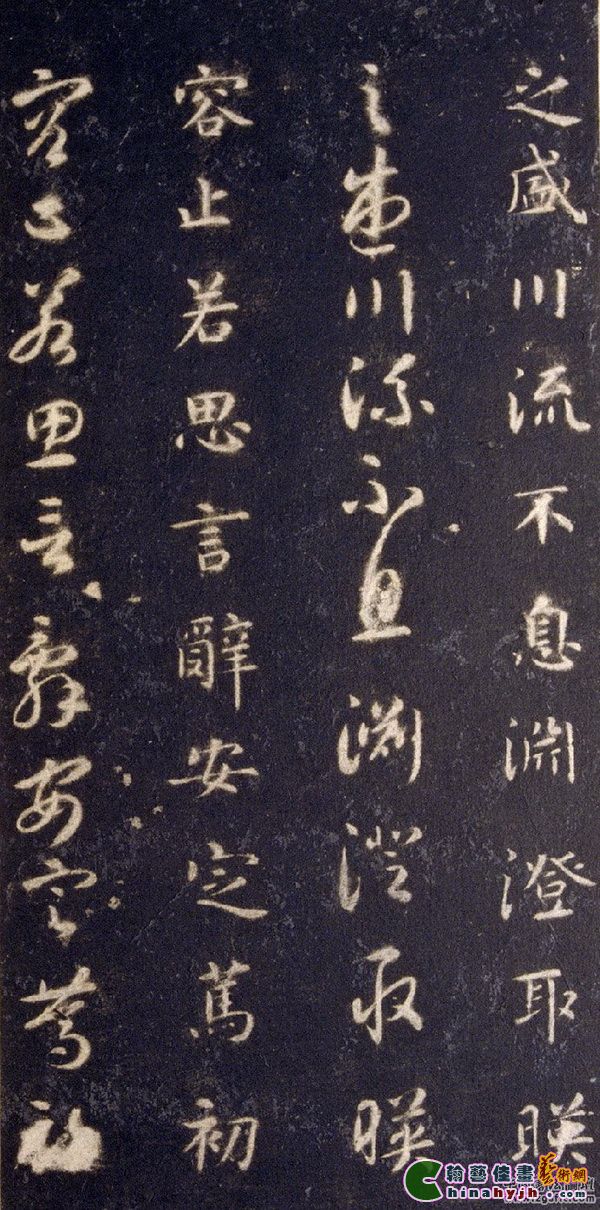 之盛川流不息淵澄取暎
之盛川流不息淵澄取暎
容止若思言辭安定篤初
容止若思言辭安定篤初
翰藝佳畫藝術網
Chinahyjh.com